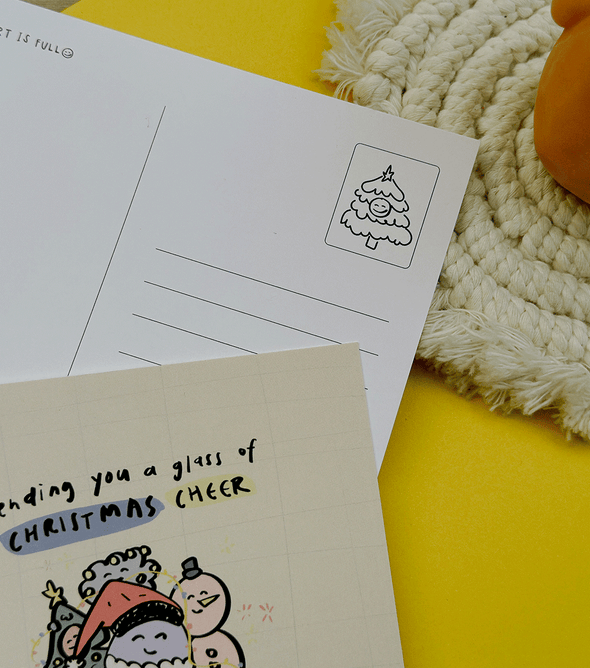 IS FULL
you a glass of
CHRISTMAS CHEER